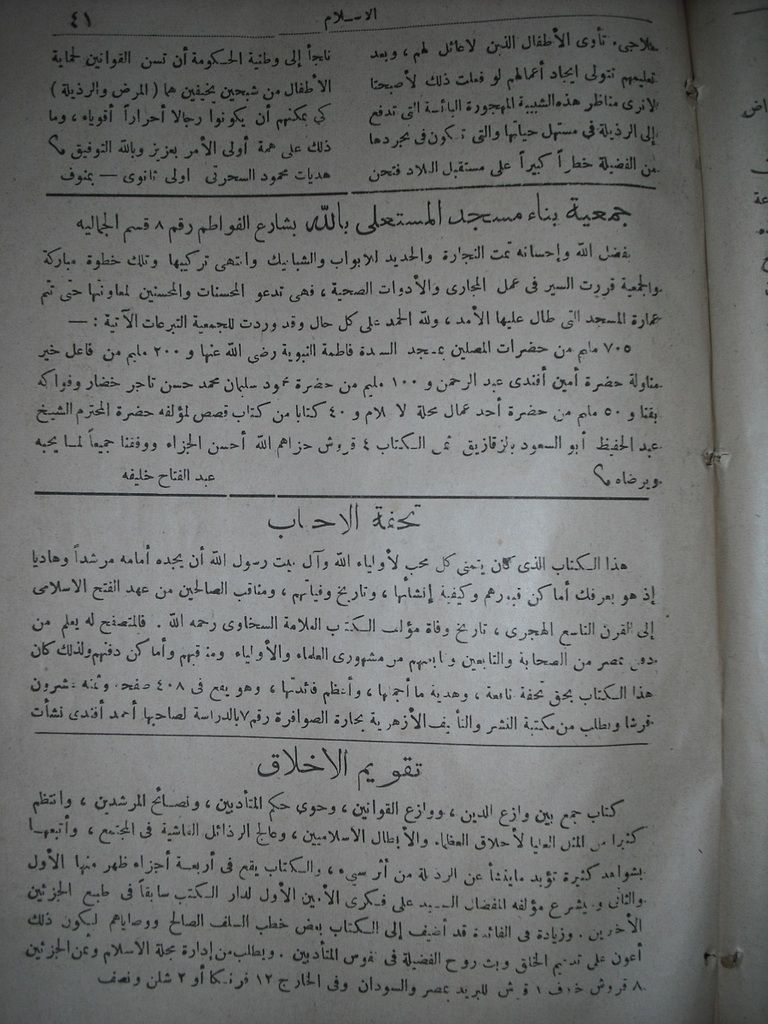 الاسلام
٤١
ملاجىء تأوى الأطفال الذين لا عائل لهم ، وبعد
تعليمهم تتولى ايجاد أعمالهم لو فعلت ذلك لأصبحنا
لانرى مناظر هذه الشبيبة المهجورة البائسة التى تدفع
إلى الرذيلة فى مستهل حياتها والتى تكون فى تجردها
من الفضيلة خطراً كبيراً على مستقبل البلاد فنحن
نلجأ إلى وطنية الحكومة أن تسن القوانين لحماية
الأطفال من شبحين مخيفين هما ( المرض والرذيلة )
كى يمكنهم أن يكونوا رجالا أحراراً أقوياء ، وما
ذلك على همة أولى الأمر بعزيز وبالله التوفيق
هديات محمود السحرتى اولى ثانوى — بمنوف
جمعية بناء مسجد المستعلى بالله بشارع الفواطم رقم ٨ قسم الجماليه
بفضل الله وإحسانه تمت النجارة والحديد للابواب والشبابيك وانتهى تركيبها وتلك خطوة مباركة
والجمعية قررت السير فى عمل المجارى والأدوات الصحية ، فهى تدعو المحسنات والمحسنين لمعاونتها حتى تتم
عمارة المسجد التى طال عليها الأمد ، ولله الحمد على كل حال وقد وردت للجمعية التبرعات الآتية : —
٧٠٥ مليم من حضرات المصلين بمسجد السيدة فاطمة النبوية رضى الله عنها و ٢٠٠ مليم من فاعل خير
مناولة حضرة أمين أفندى عبد الرحمن و ١٠٠ مليم من حضرة محمود سليمان محمد حسن تاجر خضار وفواكه
بقنا و ٥٠ مليم من حضرة أحد عمال مجلة الاسلام و ٤٠ كتابا من كتاب قصص لمؤلفه حضرة المحترم الشيخ
عبد الحفيظ أبو السعود بالزقازيق ثمن الكتاب ٤ قروش جزاهم الله أحسن الجزاء ووفقنا جميعاً لما يحبه
ويرضاه
عبد الفتاح خليفه
تحفة الاحباب
هذا الكتاب الذى كان يتمنى كل محب لأولياء الله وآل بيت رسول الله أن يجده أمامه مرشداً وهاديا
إذ هو يعرفك أماكن قبورهم وكيفية إنشائها ، وتاريخ وفياتهم ، ومناقب الصالحين من عهد الفتح الاسلامى
إلى القرن التاسع الهجرى ، تاريخ وفاة مؤلف الكتاب العلامة السخاوى رحمه الله . فالمتصفح له يعلم من
دفن بمصر من الصحابة والتابعين وتابعيهم من مشهورى العلماء والأولياء ومناقبهم وأماكن دفنهم ولذلك كان
هذا الكتاب بحق تحفة نافعة ، وهدية ما أجملها ، وأعظم فائدتها ، وهو يقع فى ٤٠٨ صفحة وثمنه عشرون
قرشا ويطلب من مكتبة النشر والتأليف الأزهرية بحارة الصوافرة رقم ٧ بالدراسة لصاحبها أحمد أفندى نشأت
تقويم الاخلاق
كتاب جمع بين وازع الدين ، ووازع القوانين ، وحوى حكم المتأدبين ، ونصائح المرشدين ، وانتظم
كثيرا من المثل العليا لأخلاق العظماء والأبطال الاسلاميين ، وعالج الرذائل الفاشية فى المجتمع ، وأتبعها
بشواهد كثيرة تؤيد ماينشأ عن الرذيلة من أثر سيىء ، والكتاب يقع فى أربعة أجزاء ظهر منها الأول
والثانى ويشرع مؤلفه المفضال السيد على فكرى الأمين الأول لدار الكتب سابقاً فى طبع الجزئين
الأخيرين . وزيادة فى الفائدة قد أضيف إلى الكتاب بعض خطب السلف الصالح ووصاياهم ليكون ذلك
أعون على تقويم الخلق وبث روح الفضيلة فى نفوس المتأدبين . ويطلب من إدارة مجلة الاسلام وثمن الجزئين
٨ قروش خلاف ١ قرش للبريد بمصر والسودان وفى الخارج ١٢ فرنكا أو ٢ شلن ونصف